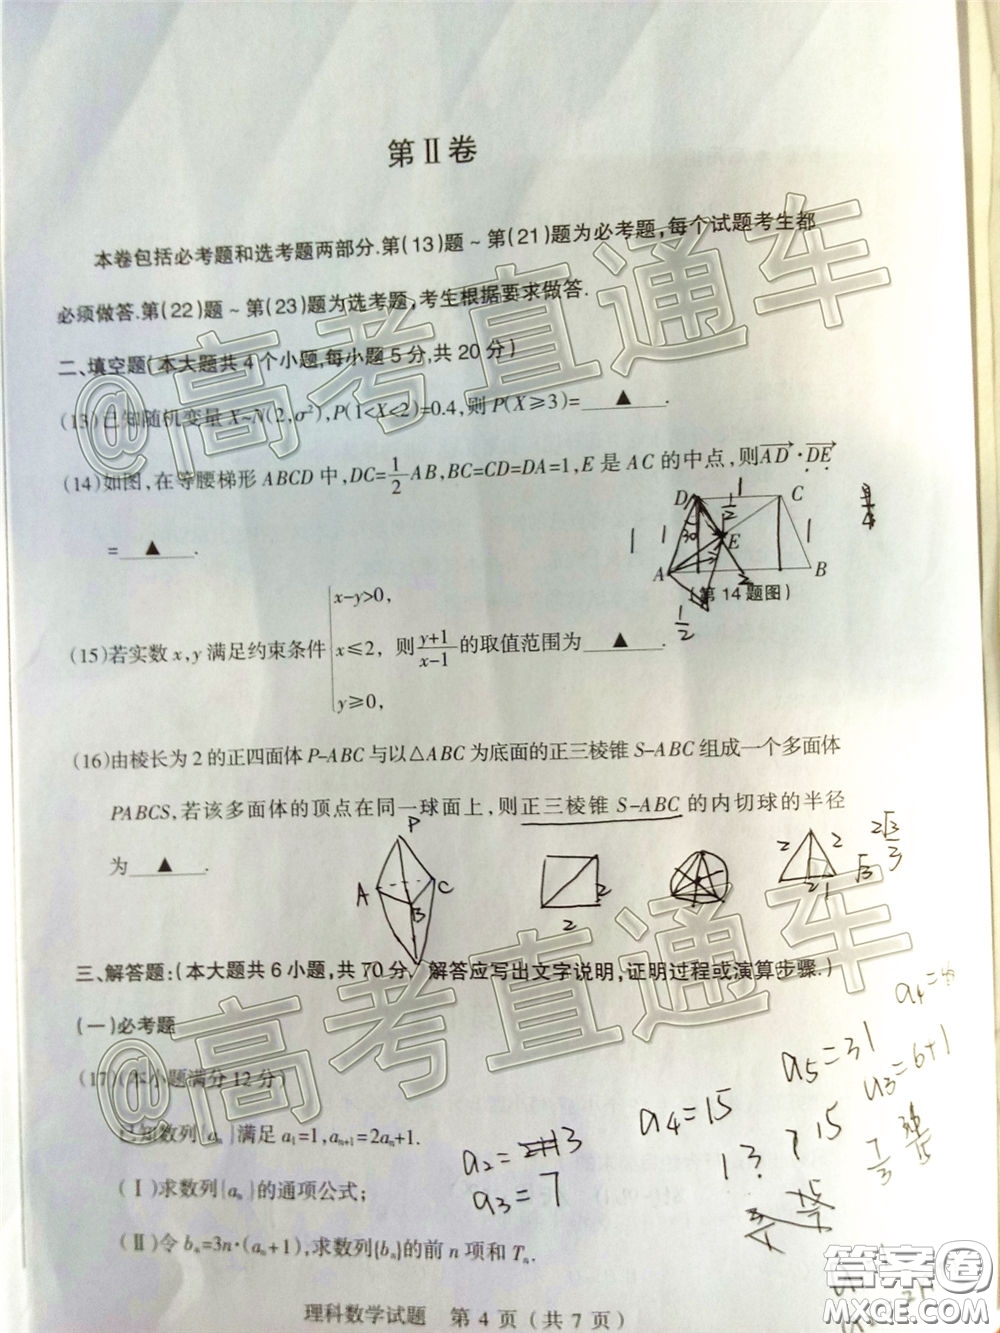 第Ⅱ卷
本卷包括必考题和选考题两部分.第(13)题~第(21)题为必考题,每个试题考生都
必须做答.第(22)题~第(23)题为选考题,考生根据要求做答.
二、填空题(本大题共4个小题,每小题5分,共20分)
(13)已知随机变量X~N(2,σ²),P(1<X<2)=0.4,则P(X≥3)=▲.
(14)如图,在等腰梯形ABCD中,DC=1/2AB,BC=CD=DA=1,E是AC的中点,则AD·DE
=▲.
D C
E
A B
(第14题图)
1
1/2
1 1
30
1
1/2
2
3/4
x-y>0,
(15)若实数x,y满足约束条件 x≤2, 则 y+1/x-1 的取值范围为▲.
y≥0,
(16)由棱长为2的正四面体P-ABC与以△ABC为底面的正三棱锥S-ABC组成一个多面体
PABCS,若该多面体的顶点在同一球面上,则正三棱锥S-ABC的内切球的半径
为▲.
P
A B C
2
2
2 2
2 1
√3
2√3/3
三、解答题:(本大题共6小题,共70分,解答应写出文字说明,证明过程或演算步骤.)
(一)必考题
(17)(本小题满分12分)
已知数列{aₙ}满足a₁=1,aₙ₊₁=2aₙ+1.
(Ⅰ)求数列{aₙ}的通项公式;
(Ⅱ)令bₙ=3n·(aₙ+1),求数列{bₙ}的前n项和Tₙ.
a₂= 3
a₃=7
a₄=15
a₅=31
a₃=6+1
1 3 7 15
7/3
理科数学试题 第4页(共7页)
@高考直通车
@高考直通车
答案圈
MXQE.COM